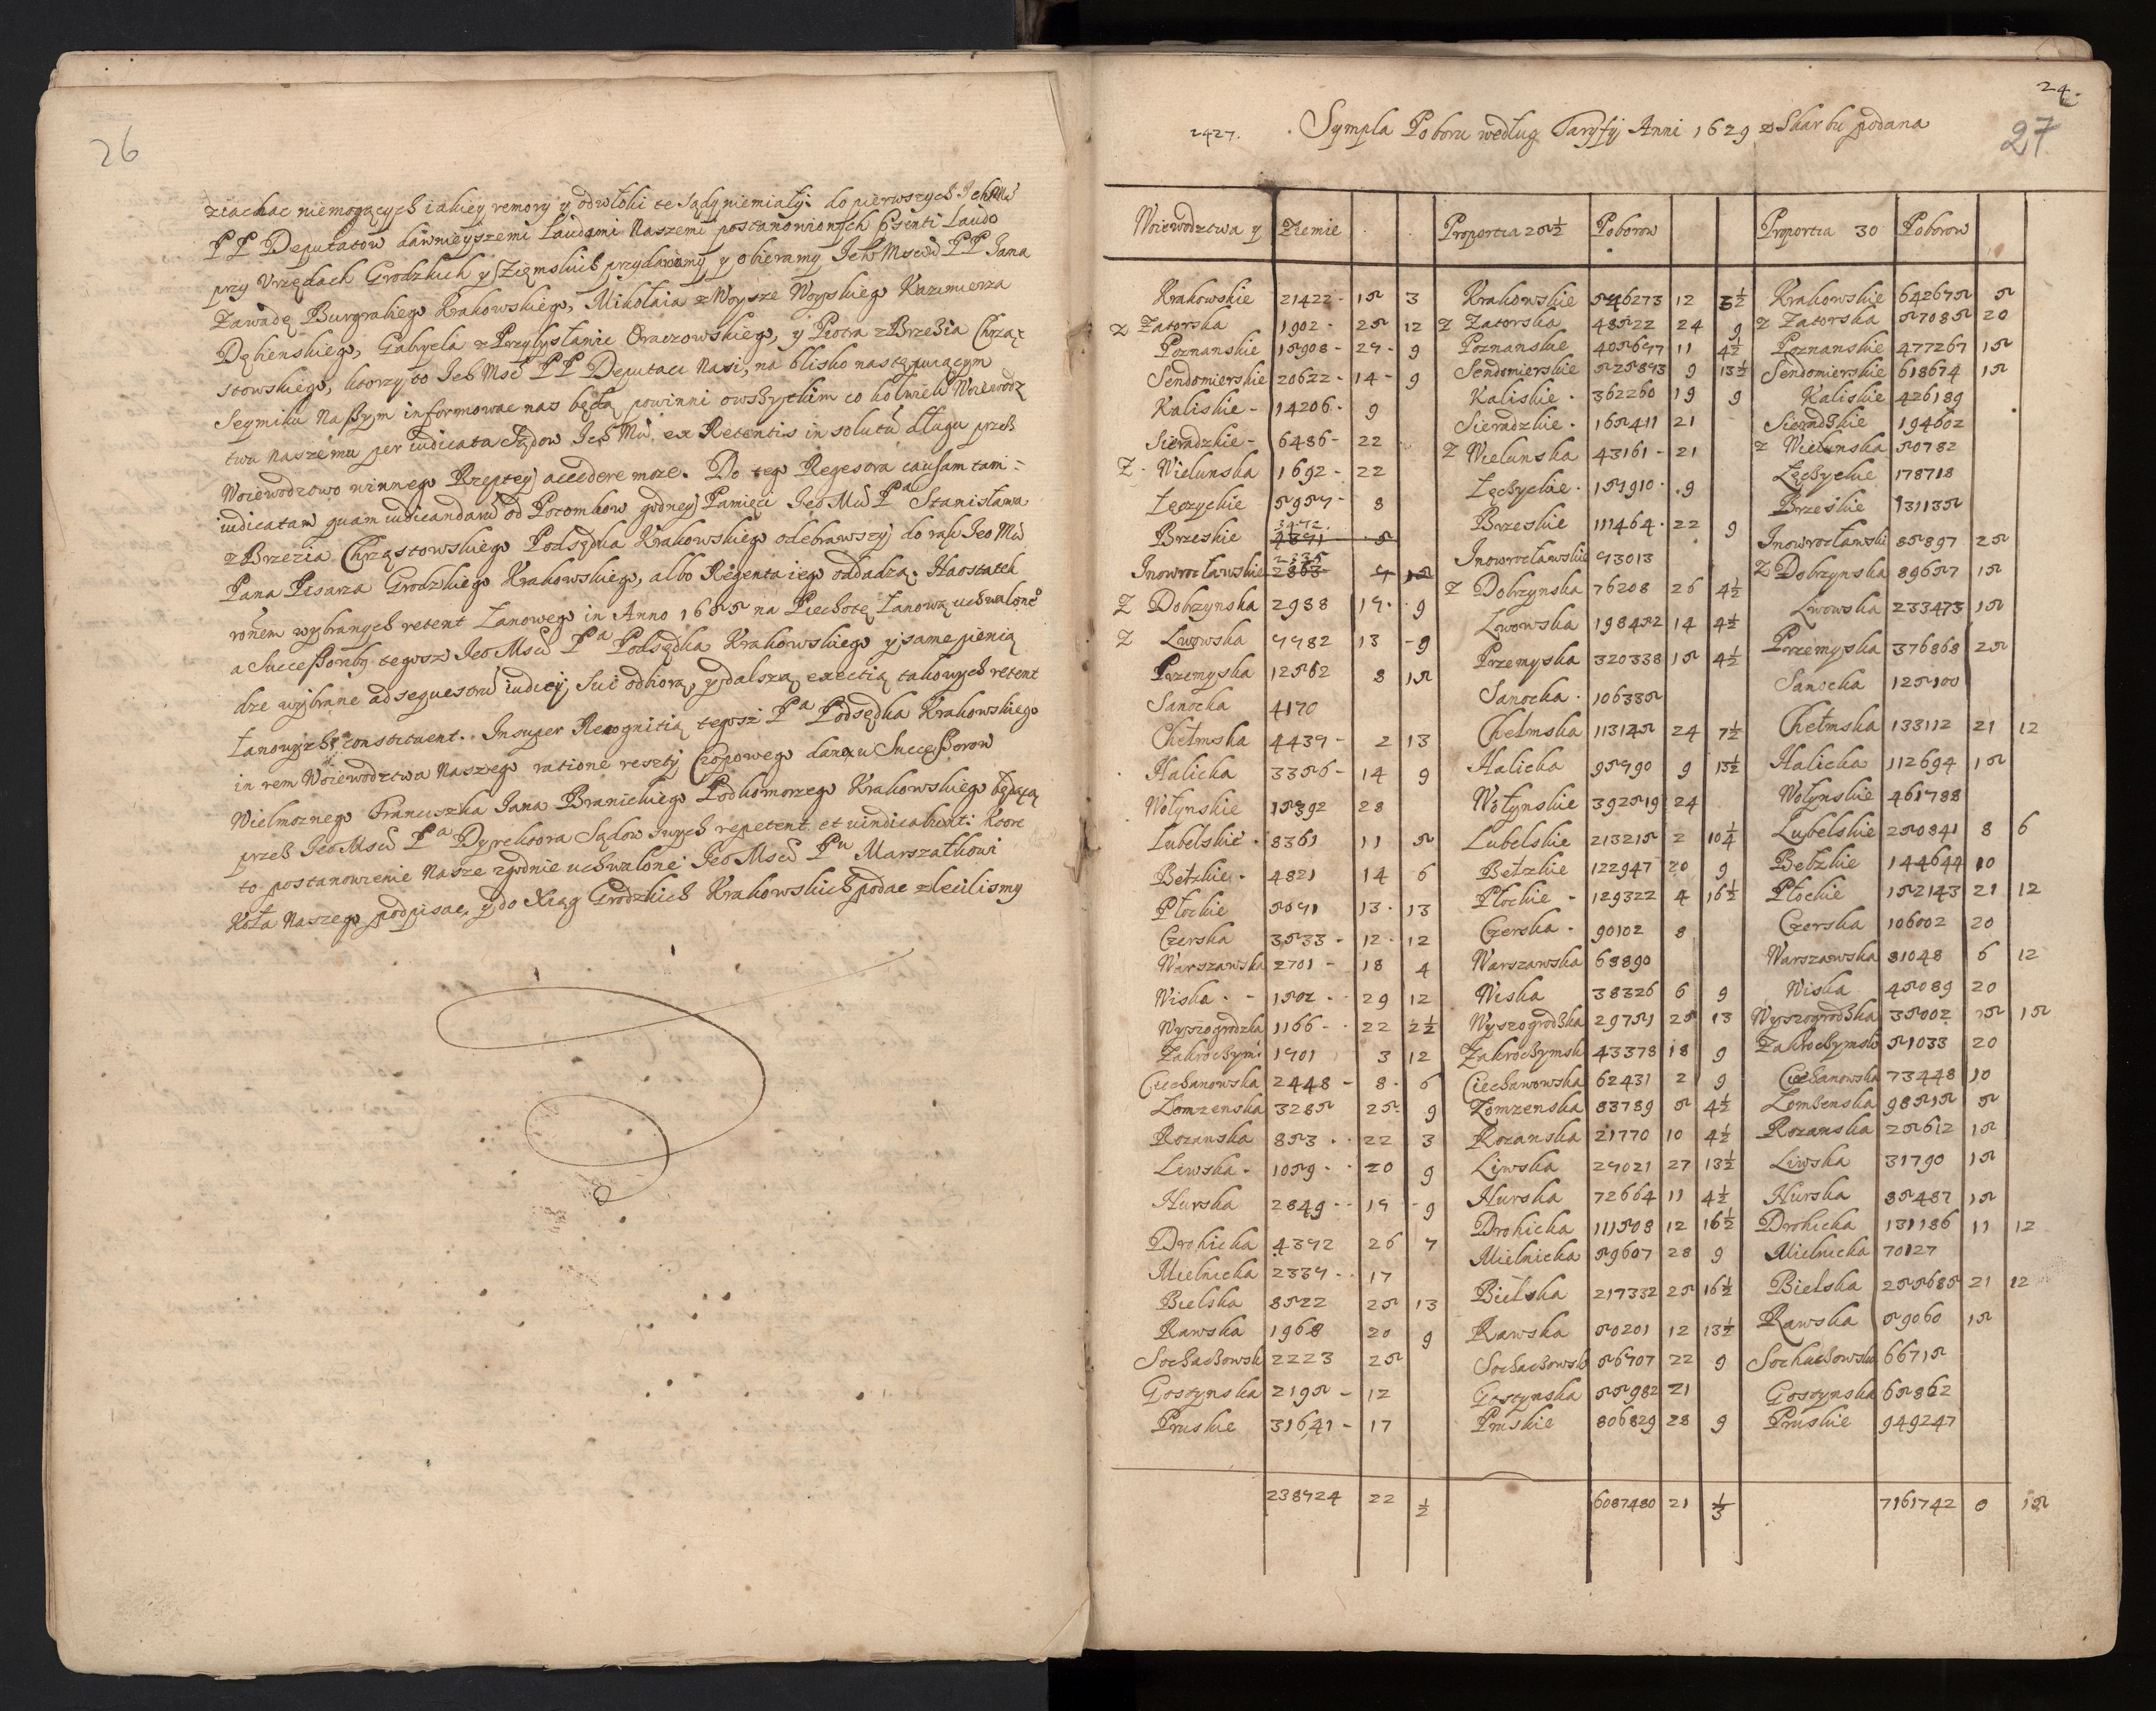 26
ziachac niemogących iakiey remory y odwłoki te Sądy niemiały: do pierwszych Ich Mć
PP Deputatow dawnieyszemi Laudami Naszemi postanowionych Psenti Laudo
przy Vrzędach Grodzkich y Ziemskich przydaiemy y obieramy Ich Mciw PP Jana
Zawadę Burgrabiego Krakowskiego, Mikołaia z Woysze Woyskiego Kazimierza
Dębenskiego, Gabryela z Przybysławic Oraczowskiego, y Piotra z Brzezia Chrząs
stowskiego, ktorzy to Ich Mść PP Deputaci Nasi, na blisko następuiącym
Seymiku Naszym informowac nas będą powinni o wszytkim co kolwiek Woiewodz
twu Naszemu per iudicata Sądow Ich Mci ex Retentis in solutū długu przez
Woiewodztwo winnego Rzeptey accedere moze. Do tego Regesora causam tam
iudicatam quam iudicandam od Potomkow godney Pamięci Jeo Mci Pa Stanisława
z Brzezia Chrząstowskiego Podsędka Krakowskiego odebrawszy do rąk Jeo Mci
Pana Pisarza Grodzkiego Krakowskiego, albo Regenta iego oddadzą. Ha ostatek
ronem wybranych retent Łanowego in Anno 1655 na Piechotę Łanową uchwalone
a Successoriby tegosz Jeo Msci Pa Podsędka Krakowskiego y same pienią
dze wybrane ad sequesorū iudicij Sui odbiorą, y dalszą exectią takowych retent
Łanowych constituent. Insuper Recognitią tegosz Pa Podsędka Krakowskiego
in rem Woiewodztwa Naszego ratione reszty Czopowego daną u Successorow
Wielmoznego Franciszka Jana Branickiego Podkomorzego Krakowskiego będącą
przez Jeo Msci Pa Dyrektora Sądow swych repetent et vindicabunt: Ktore
to postanowienie Nasze zgodnie uchwalone Jeo Msci Pu Marszałkowi
Koła Naszego podpisac, y do Xiąg Grodzkich Krakowskich podac zlecilismy
24.
27
2427. Sympla Poboru według Taryfy Anni 1629 z Skarbu podana
Woiewodztwa y Ziemie Proportia 25½ Poborow Proportia 30 Poborow
Krakowskie 21422 - 15 3 Krakowskie 546273 12 3½ Krakowskie 642675 5
z Zatorska 1902 - 25 12 z Zatorska 48522 24 9 z Zatorska 57085 20
Poznanskie 15908 - 27 - 9 Poznanskie 405677 11 4½ Poznanskie 477267 15
Sendomierskie 20622 - 14 - 9 Sendomierskie 525873 9 13½ Sendomierskie 618674 15
Kaliskie - 14206 - 9 Kaliskie - 362260 19 9 Kaliskie 426189
Sieradzkie - 6486 - 22 Sieradzkie - 165411 21 Sieradzkie 194602
Z - Wielunska 1692 - 22 z Wielunska 43161 - 21 z Wielunska 50782
Łęczyckie 5957 - 8 Łęczyckie - 151910 - 9 Łęczyckie 178718
Brzeskie 3472. 4371 5 Brzeskie 111464 - 22 9 Brzeskie 131135
Inowrocławskie 2863 15 Inowrocławskie 73013 Inowrocławski 85897 25
Z Dobrzynska 2988 19 - 9 Z Dobrzynska 76208 26 4½ Z Dobrzynska 89657 15
Z Lwowska 7782 13 - 9 Lwowska 198452 14 4½ Lwowska 233473 15
Przemyska 12562 8 15 Przemyska 320338 15 4½ Przemyska 376868 25
Sanocka 4170 Sanocka - 106335 Sanocka 125100
Chełmska 4437 - 2 13 Chełmska 113145 24 7½ Chełmska 133112 21 12
Halicka 3756 - 14 9 Halicka 95790 9 13½ Halicka 112694 15
Wołynskie 15392 28 Wołynskie 392519 24 Wołynskie 461788
Lubelskie - 8361 11 5 Lubelskie 213215 2 10½ Lubelskie 250841 8 6
Bełzkie - 4821 14 6 Bełzkie 122947 20 9 Bełzkie 144644 10
Płockie 5071 13 - 13 Płockie - 129322 4 16½ Płockie 152143 21 12
Czerska 3533 - 12 - 12 Czerska - 90102 8 Czerska 106002 20
Warszawska 2701 - 18 4 Warszawska 68890 Warszawska 81048 6 12
Wiska - - 1502 - - 29 12 Wiska 38326 6 9 Wiska 45089 20
Wyszogrodzka 1166 - - 22 2½ Wyszogrodzka 29751 25 13 Wyszogrodzka 35002 25 15
Zakroczymi 1701 3 12 Zakroczymsk 43378 18 9 Zakroczymsk 51033 20
Ciechanowska 2448 - 8 - 6 Ciechanowska 62431 2 9 Ciechanowska 73448 10
Łomzenska 3285 25 - 9 Łomzenska 83789 5 4½ Łomzenska 98515 5
Rozanska 853 - - 22 3 Rozanska 21770 10 4½ Rozanska 25612 15
Liwska - 1059 - - 20 9 Liwska 27021 27 13½ Liwska 31790 15
Nurska 2849 - - 17 - 9 Nurska 72664 11 4½ Nurska 85487 15
Drohicka 4372 26 7 Drohicka 111508 12 16½ Drohicka 131186 11 12
Mielnicka 2337 - - 17 Mielnicka 59607 28 9 Mielnicka 70127
Bielska 8522 25 13 Bielska 217332 25 16½ Bielska 255685 21 12
Rawska 1968 20 9 Rawska 50201 12 13½ Rawska 59060 15
Sochaczowsk 2223 25 Sochaczowsk 56707 22 9 Sochaczowska 66715
Gostynska 2195 - 12 Gostynska 55982 21 Gostynska 65862
Pruskie 31641 - 17 Pruskie 806829 28 9 Pruskie 949247
238724 22 ½ 6087480 21 ⅓ 7161742 0 15